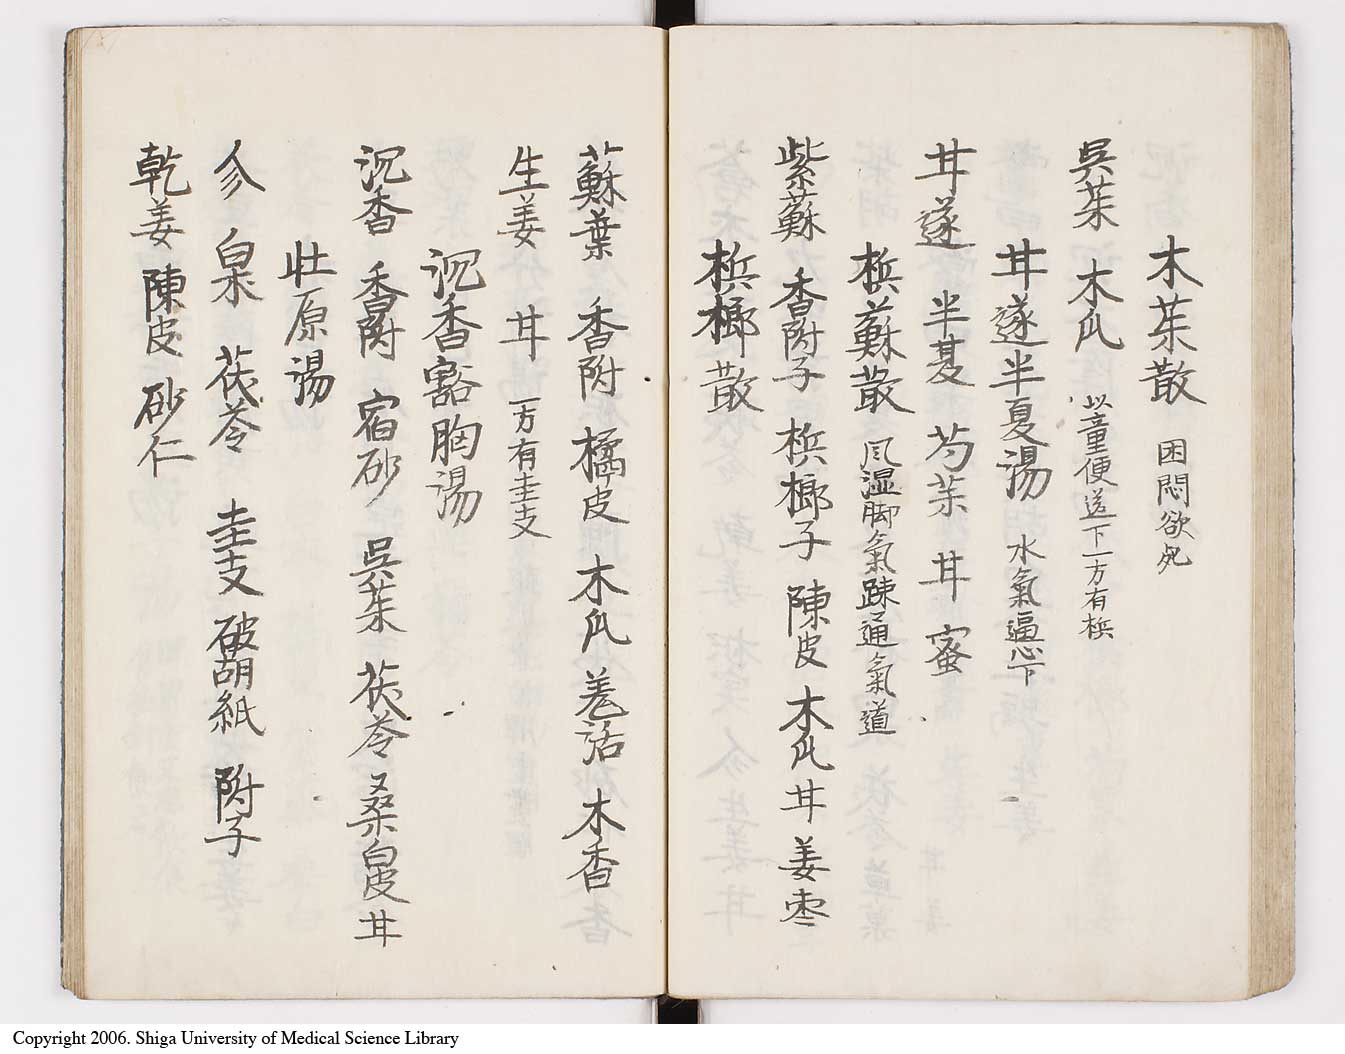 木茱散 困悶欲死
吳茱 木瓜 以童便送下一方有梹
甘遂半夏湯 水氣逼心下
甘遂 半夏 芍茱 甘 蜜
梹蘇散 风湿脚氣疎通氣道
紫蘇 香附子 梹榔子 陳皮 木瓜 甘 姜 枣
梹榔散
蘇葉 香附 橘皮 木瓜 羗活 木香
生姜 甘 一方有圭支
沉香豁胸湯
沉香 香附 宿砂 吳茱 茯苓 桑白皮 甘
壮原湯
參 白朮 茯苓 圭支 破胡紙 附子
乾姜 陳皮 砂仁
Copyright 2006. Shiga University of Medical Science Library